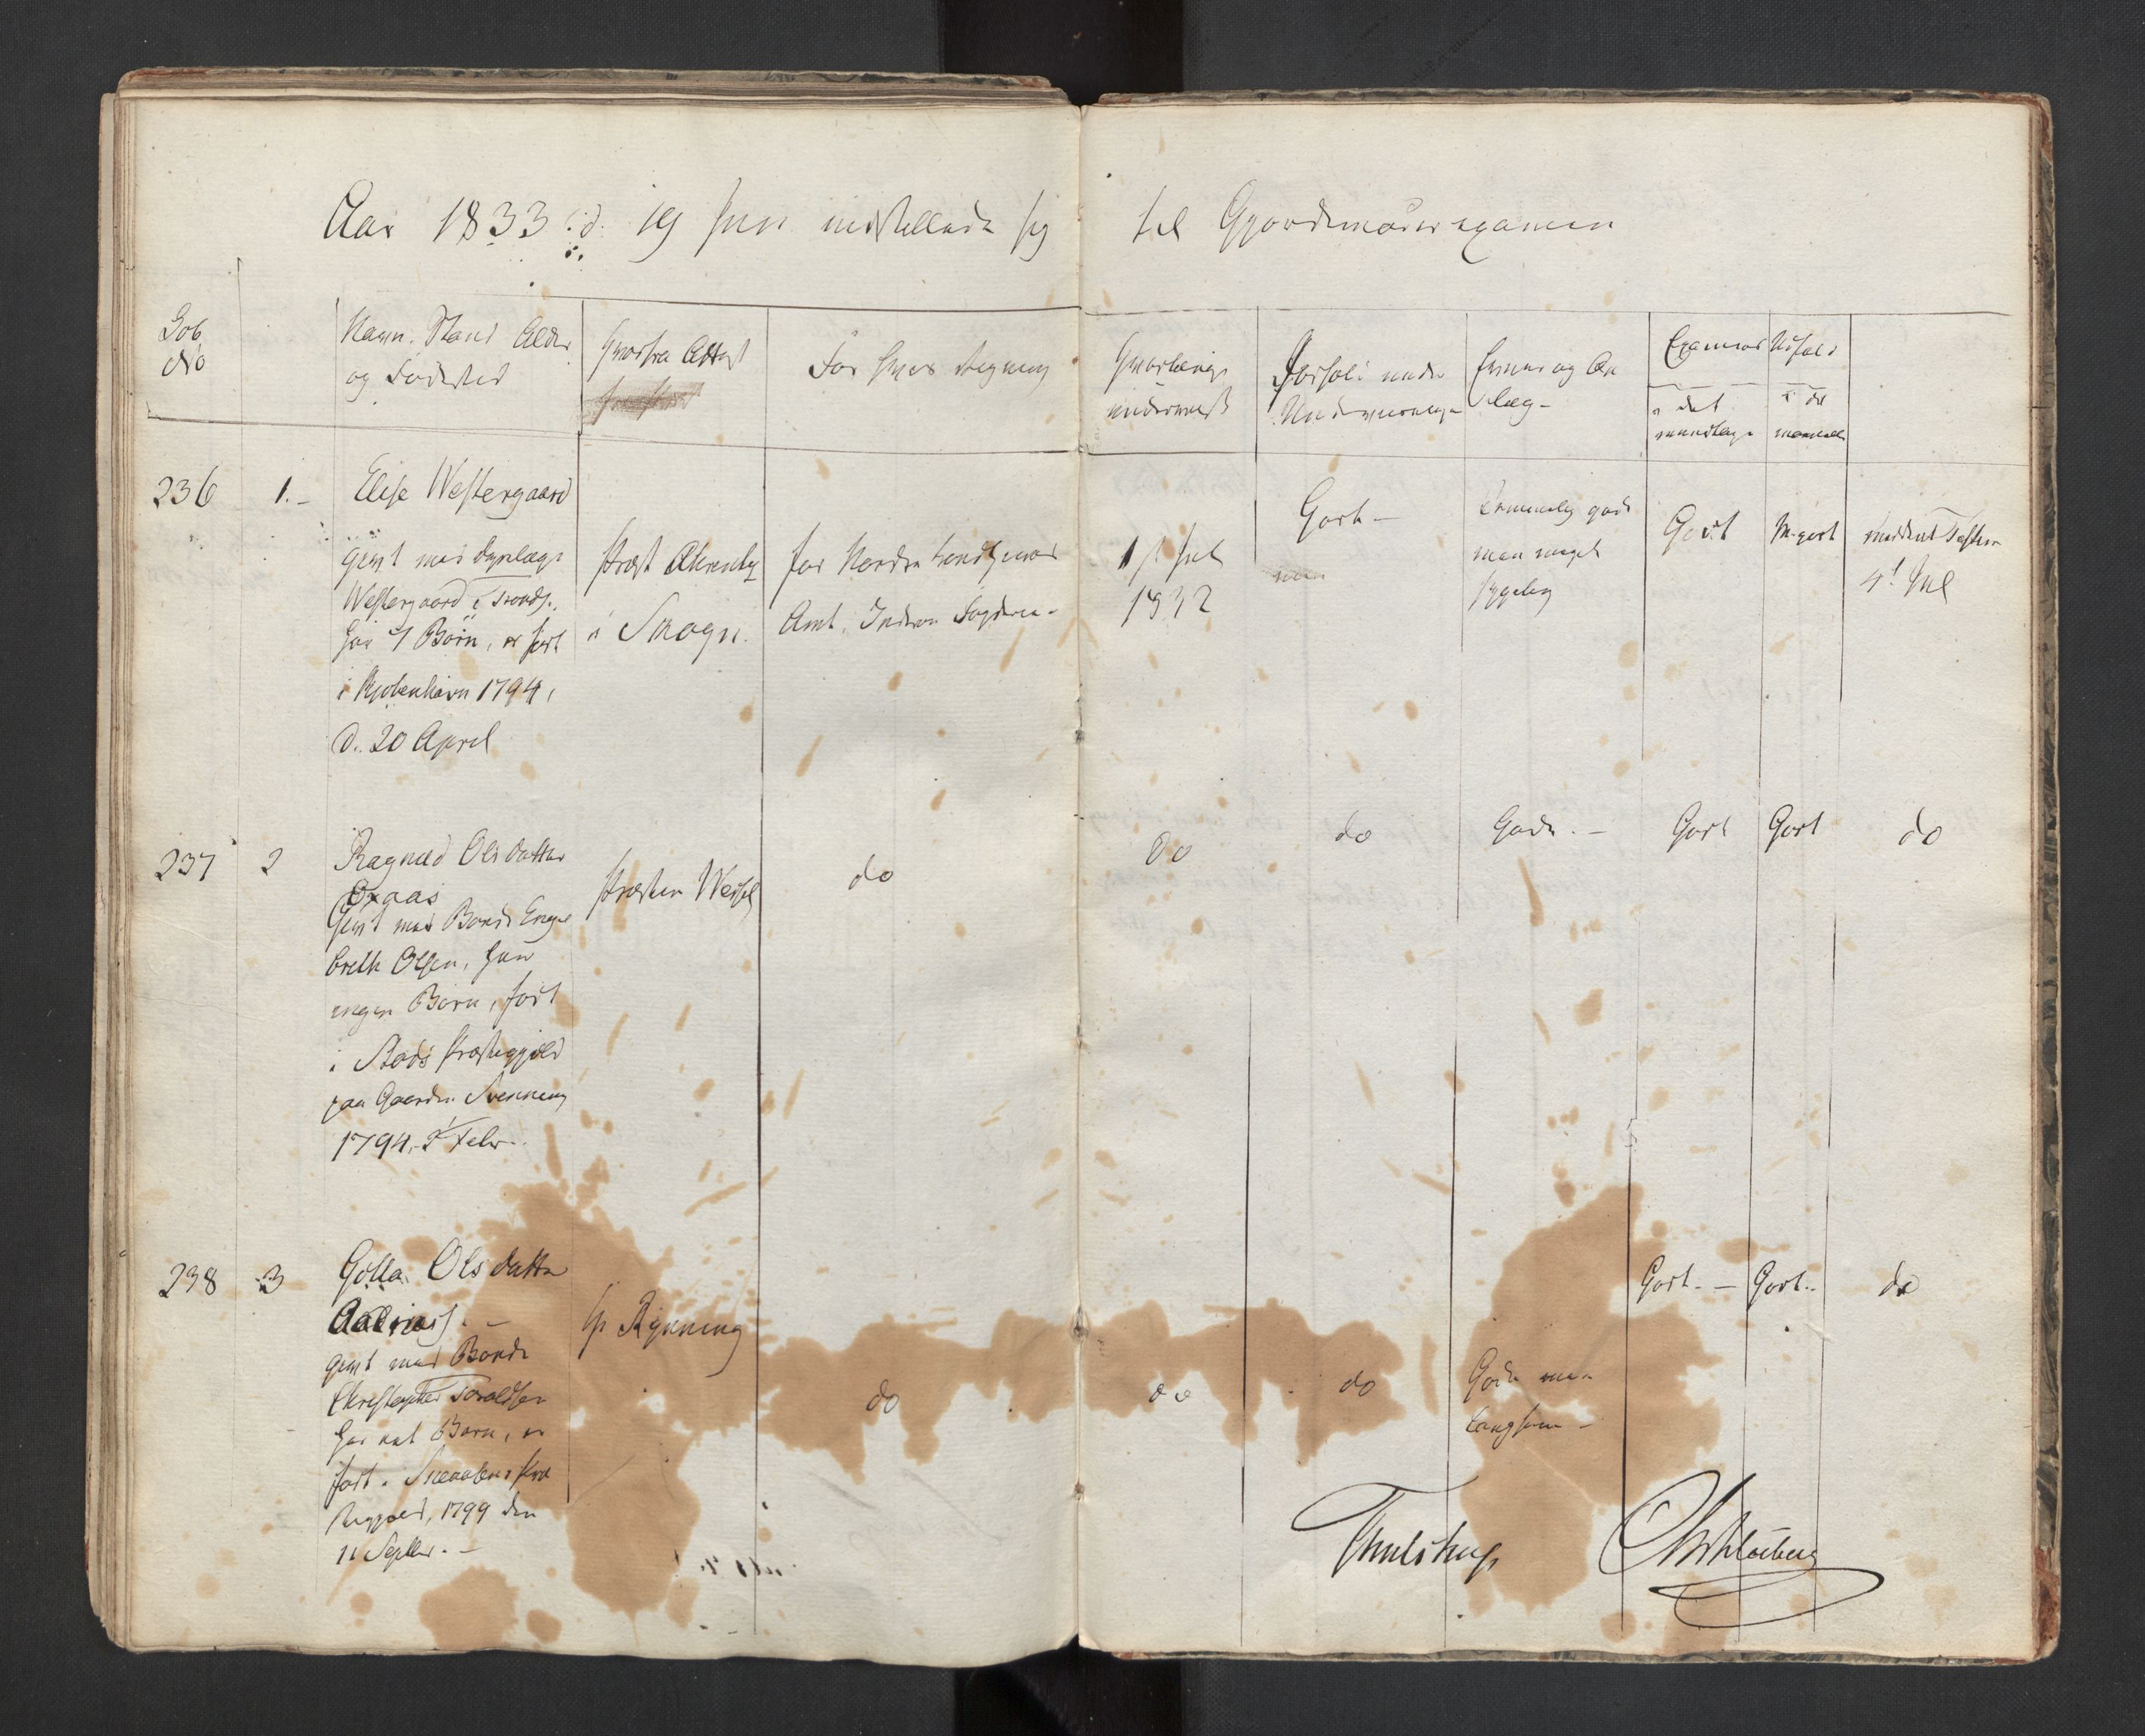 Aar 1833 d. 19 Juni indstillede sig til Gjordemoderexamen
Lob
No
Navn. Stand Alder
og Fødested
Hvorfra Attest
For hvis Regning
Hvorlænge
underviist
Forhold under
Underviisningen
Evner og An
læg-
Examens Udfald
i det
mundtlige
i det
manuelle
236 1.-
Elise Westergaard
Givt med
Westergaard i
har 4 Børn, er født
i Kjøbenhavn 1794,
d. 20 April
Præst
i
for Nordre Trondhjems
Amt. Indre Fogderie-
1 Juli
1832
Godt-
Temmelig gode
men meget
sygelig
Godt
M.godt
4 Jul
237 2
Ragnild Olsdatter
Oxaas
Givt med Bonde Enge
breth Olsen, har
ingen Børn, født
i Stods Præstegjeld
paa Gaarden
1794, Febr.
Præsten Wessel
do
do
do
Gode.-
Godt
Godt
do
238 3
Golla Olsdatter
givt med Bonde
Christopher Toraldsen
har eet Barn, er
født i Sneaasens Præ
stegjeld, 1799 den
11 Septbr.-
Hr Rynning
do
do
do
Gode men
langsom-
Godt.-
Godt.-
do
Thulstrup